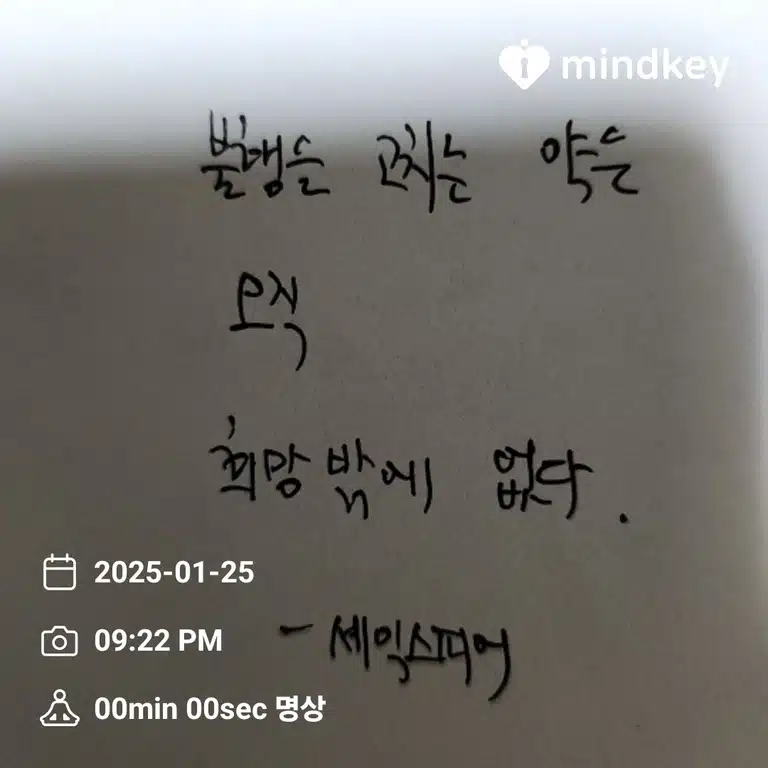 mindkey
불행을 고치는 약은
오직
희망 밖에 없다.
- 세익스피어
2025-01-25
09:22 PM
00min 00sec 명상